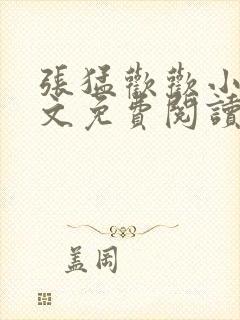 張猛歡歡小
文免費閱讀
盖岡